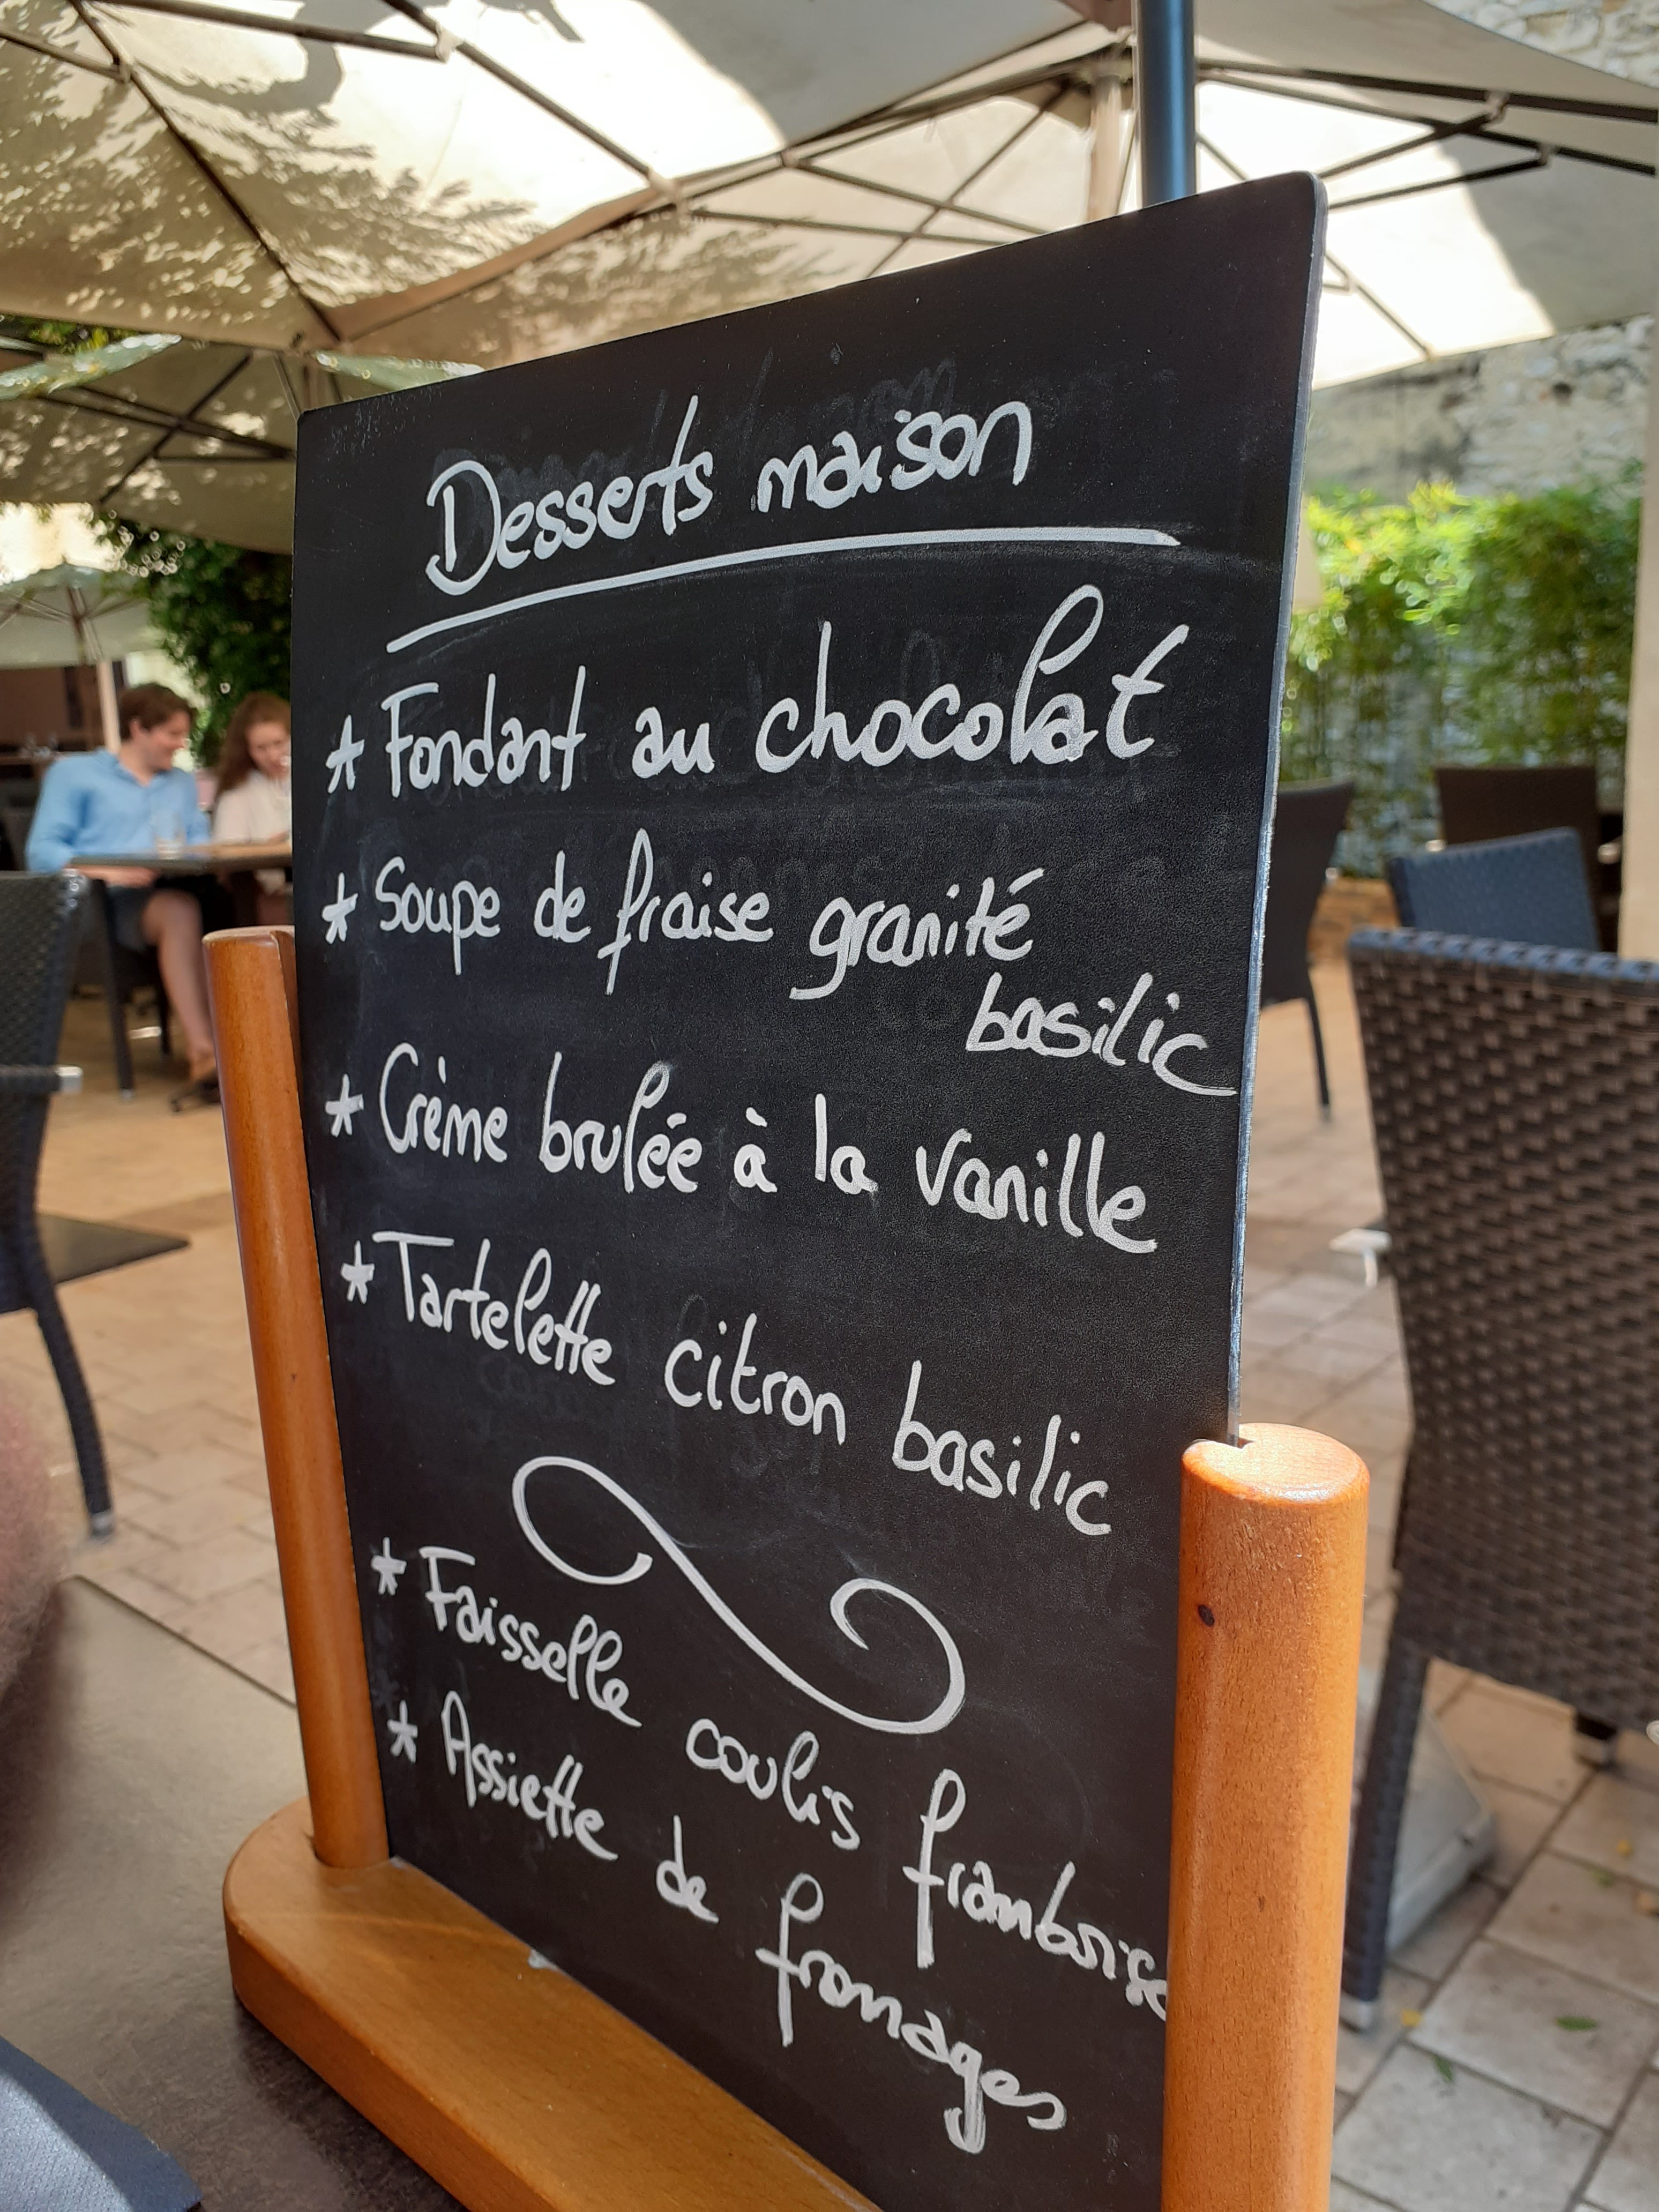 Desserts maison
* Fondant au chocolat
* Soupe de fraise granité
basilic
* Crème brulée à la vanille
* Tartelette citron basilic
* Faisselle coulis framboise
* Assiette de fromages